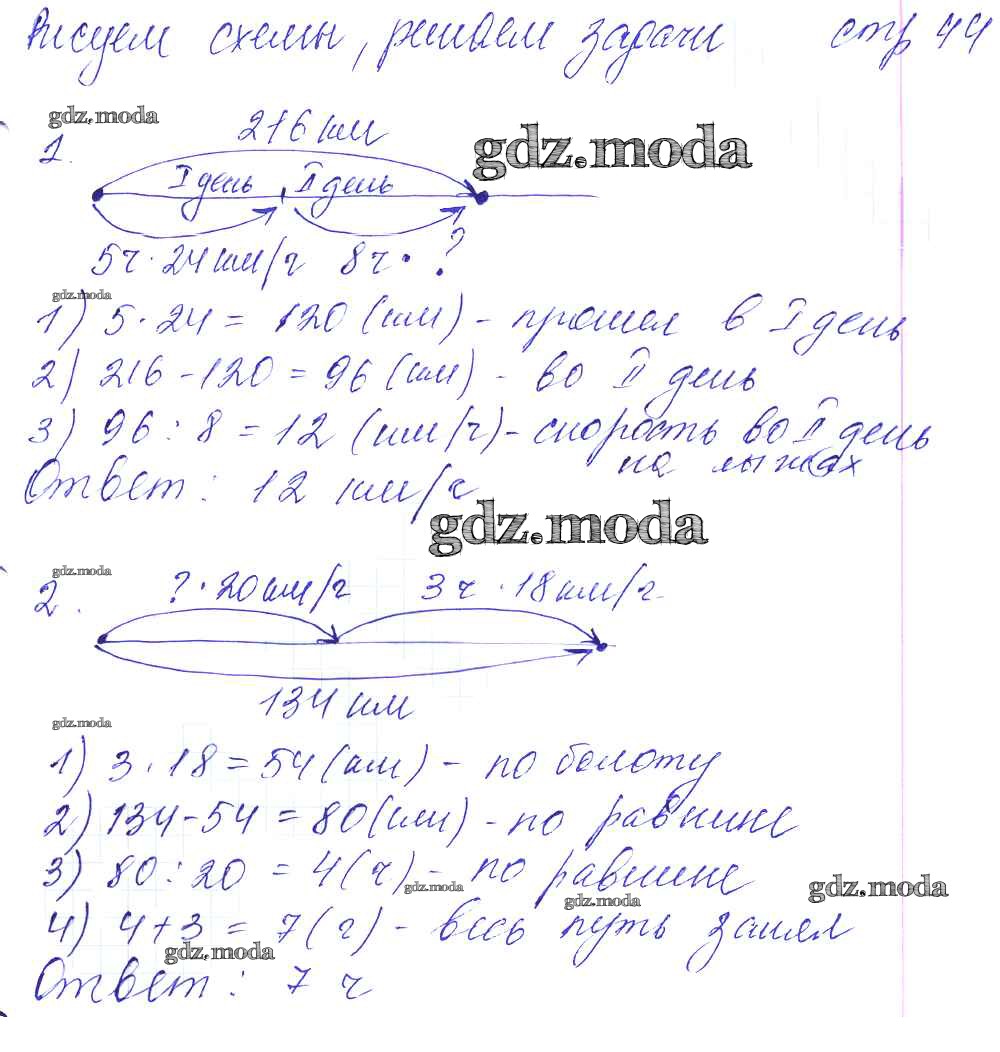 Рисуем схемы, решаем задачи стр 44
gdz.moda
216 км
gdz.moda
1.
I день II день
5ч · 24 км/ч 8ч · ?
gdz.moda
1) 5 · 24 = 120 (км) - прошел в I день
2) 216 - 120 = 96 (км) - во II день
3) 96 : 8 = 12 (км/ч) - скорость во II день
на лыжах
Ответ: 12 км/ч
gdz.moda
gdz.moda
2. ? · 20 км/ч 3 ч · 18 км/ч
134 км
gdz.moda
1) 3 · 18 = 54 (км) - по болоту
2) 134 - 54 = 80 (км) - по равнине
3) 80 : 20 = 4 (ч) - по равнине
gdz.moda
gdz.moda
gdz.moda
4) 4 + 3 = 7 (ч) - весь путь занял
gdz.moda
Ответ: 7 ч